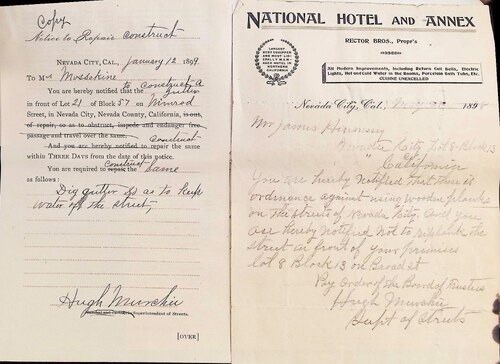 Copy
Notice to Repair construct
NEVADA CITY, CAL., January 12 1899
To Mr Mosse
You are hereby notified to construct a
gutter
in front of Lot 21 of Block 57 on
Street, in Nevada City, Nevada County, California, is out
of repair, so as to obstruct, impede and endanger free
passage and travel over the same.
construct
And you are hereby notified to repair the same
within THREE DAYS from the date of this notice.
construct
You are required to repair the same
as follows:
Dig gutter so as to keep
water off the street,
Hugh Murchie
Superintendent of Streets.
[OVER]
NATIONAL HOTEL AND ANNEX
RECTOR BROS., Propr's
LARGEST
BEST EQUIPPED
AND MOST LIB-
ERALLY MAN-
AGED HOTEL IN
NORTHERN
CALIFORNIA
All Modern Improvements, including Return Call Bells, Electric
Lights, Hot and Cold Water in the Rooms, Porcelain Bath Tubs, Etc.
CUISINE UNEXCELLED
Nevada City, Cal., May 189
Mr James Hennessy
Nevada City Lot 8 Block 13
" California
You are hereby Notified that there is
ordinence against using wooden planks
on the Streets of Nevada City. And you
are hereby Notified Not to replank the
street in front of your premises
lot 8 Block 13 on Broad st
Per Order of the Board of Trustees
Hugh Murchie
Supt of Streets